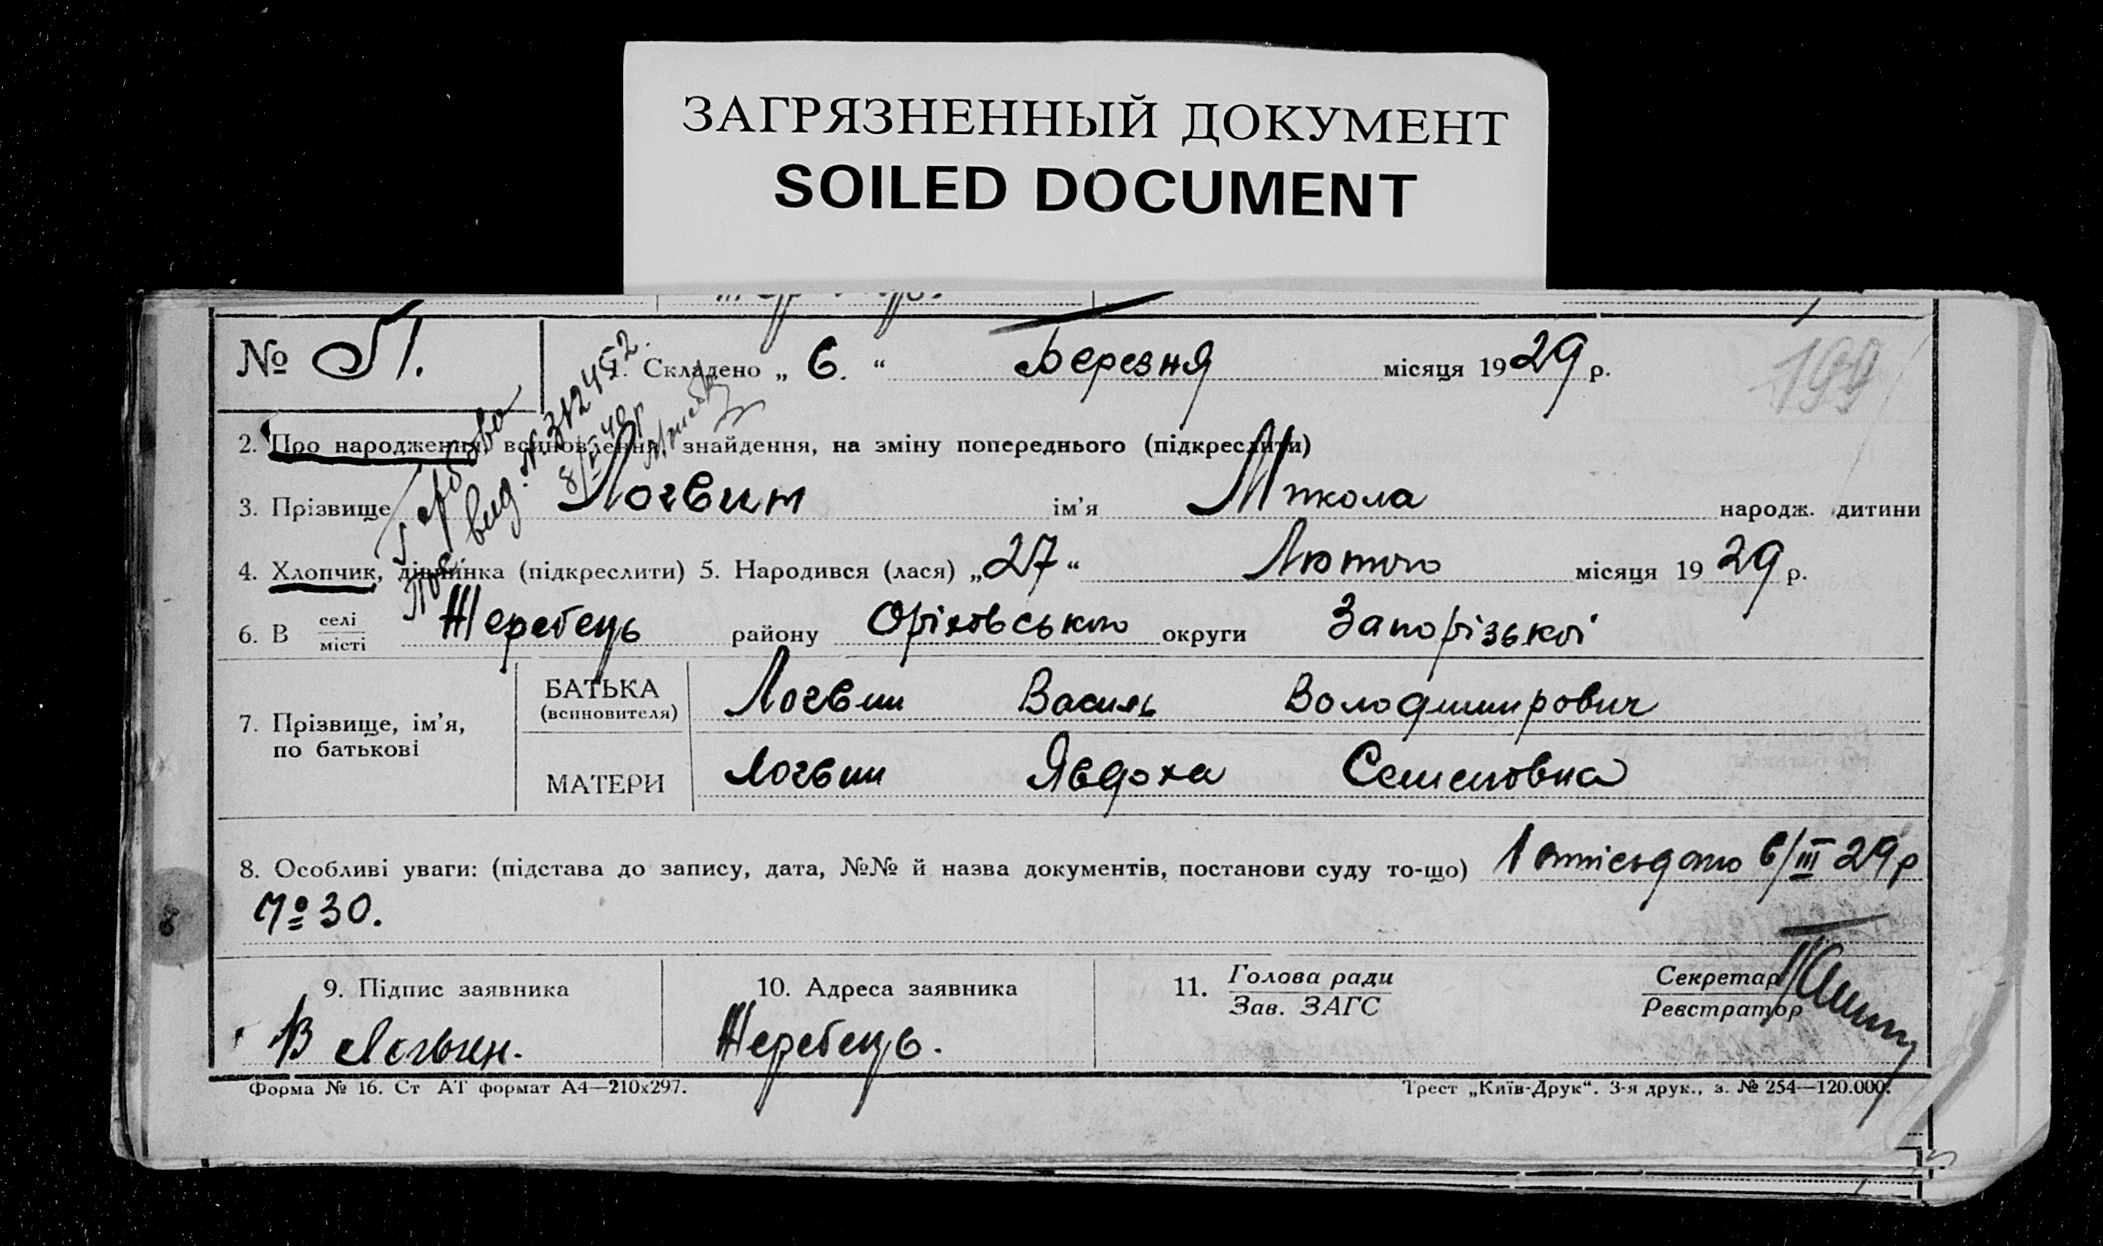 ЗАГРЯЗНЕННЫЙ ДОКУМЕНТ
SOILED DOCUMENT
№ 51.
1. Складено „ 6. “ Березня місяця 1929 р.
199
вид. № 312452.
2. Про народження, всиновлення, знайдення, на зміну попереднього (підкреслити)
3. Прізвище Логвин ім’я Микола народж. дитини
4. Хлопчик, дівчинка (підкреслити) 5. Народився (лася) „27“ Лютого місяця 1929 р.
6. В селі
місті Жеребець району Оріхівського округи Запорізької
7. Прізвище, ім’я, по батькові
БАТЬКА (всиновителя) Логвин Василь Володимирович
МАТЕРИ Логвин Явдоха Семеновна
8. Особливі уваги: (підстава до запису, дата, №№ й назва документів, постанови суду то-що) 6/III 29 р
№ 30.
9. Підпис заявника
10. Адреса заявника
11. Голова ради
Зав. ЗАГС
Секретар
Реєстратор
В Логвин.
Жеребець.
Форма № 16. Ст АТ формат А4—210х297.
Трест „Київ-Друк“. 3-я друк., з. № 254—120.000.